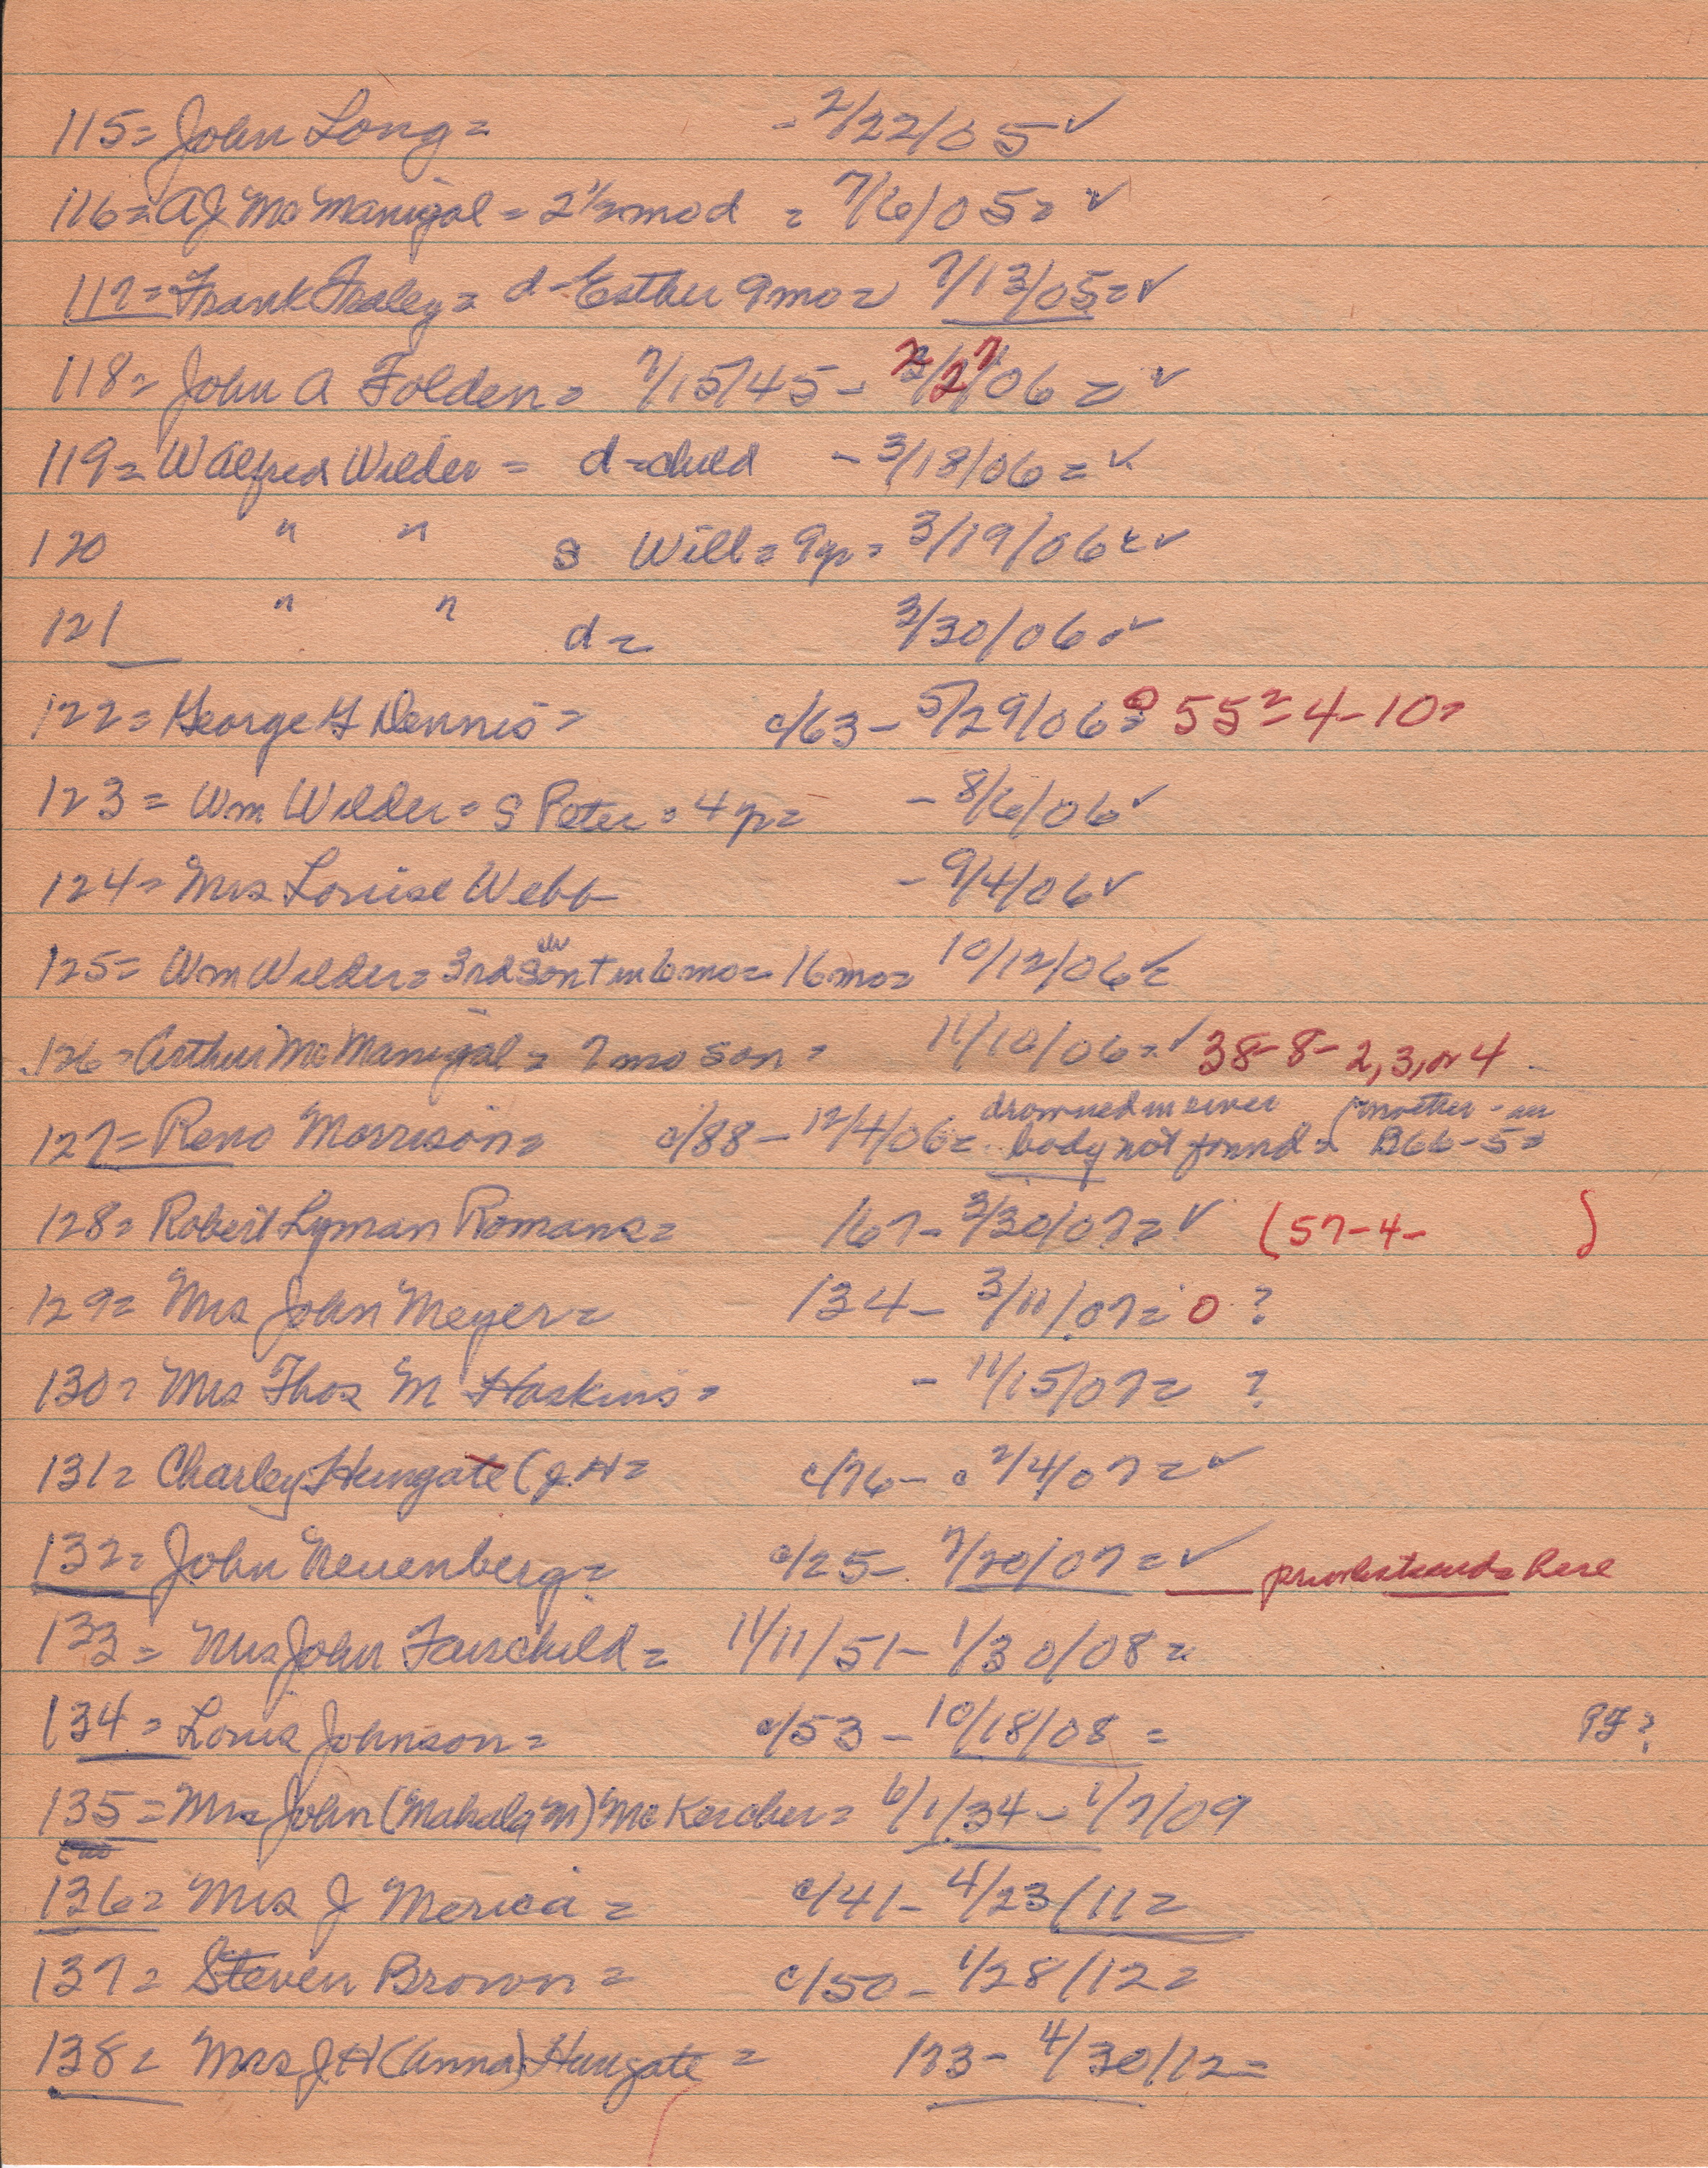 115= John Long= - 2/22/05 ✓
116= AJ McManigal = 2 1/2 mo d = 7/6/05= ✓
117= Frank Fraley= d-Esther 9mo= 7/13/05= ✓
118= John A Folden= 7/15/45 - 2/27/06 = ✓
119= W Alfred Wilder = d=child - 3/18/06 = ✓
120 " " s Will = 9yr= 3/19/06= ✓
121 " " d= 3/30/06= ✓
122= George G Dennis= c/63 - 5/29/06= 0 55=4-10=
123= Wm Wilder= S Peter= 4yr= - 8/6/06 ✓
124= Mrs Louise Webb - 9/4/06 ✓
125= Wm Wilder= 3rd son in 6mo= 16mo= 10/12/06= ✓
126= Arthur McManigal= 7 mo son= 11/10/06= ✓ 38-8-2,3, or 4
127= Reno Morrison= c/88 - 12/4/06= drowned in river
body not found= (mother - in B66-5=
128= Robert Lyman Romans= /67- 3/30/07= ✓ (57-4- )
129= Mrs John Meyer= 134- 3/11/07= 0 ?
130= Mrs Thos M Haskins= - 11/15/07= ?
131= Charley Hungate (J H= c/76- c 2/4/07= ✓
132= John Neuenberg= c/25- 7/20/07= ✓ here
133= Mrs John Fairchild= 11/11/51- 1/30/08=
134= Louis Johnson= c/53 - 10/18/08 = PF?
135= Mrs John (Mahala M) McKercher= 6/1/34 - 1/7/09
136= Mrs J Merica = c/41- 4/23/11=
137= Steven Brown= c/50 - 1/28/12=
138= Mrs J H (Anna) Hungate = 133- 4/30/12=